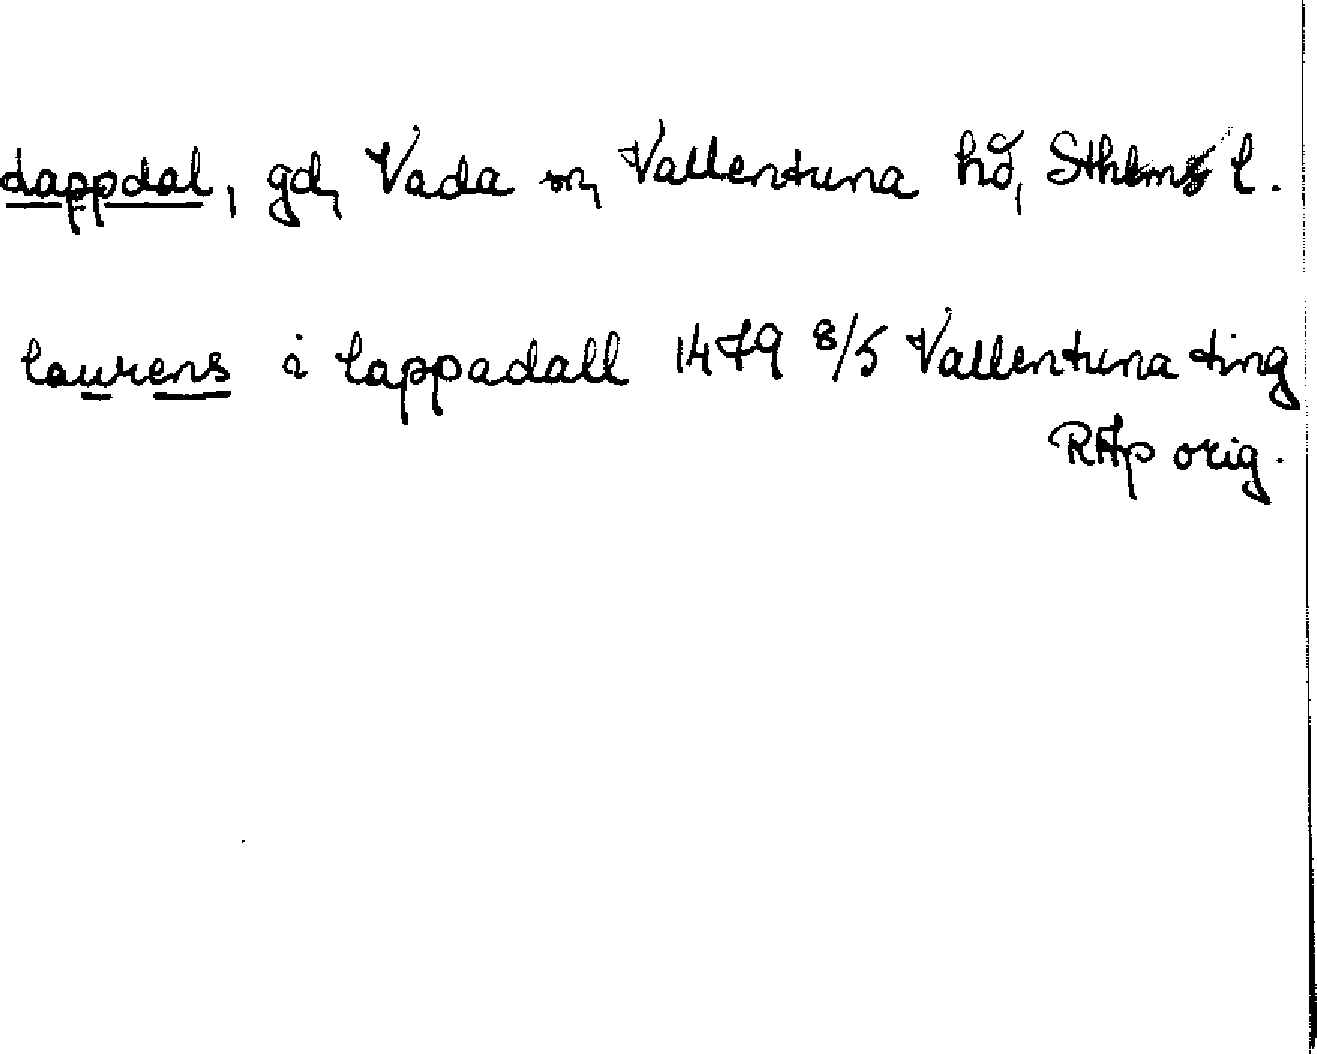 Lappdal, gd, Vada sn, Vallentuna hd, Sthlms l.
laurens i lappadall 1479 8/5 Vallentuna ting
RAp orig.